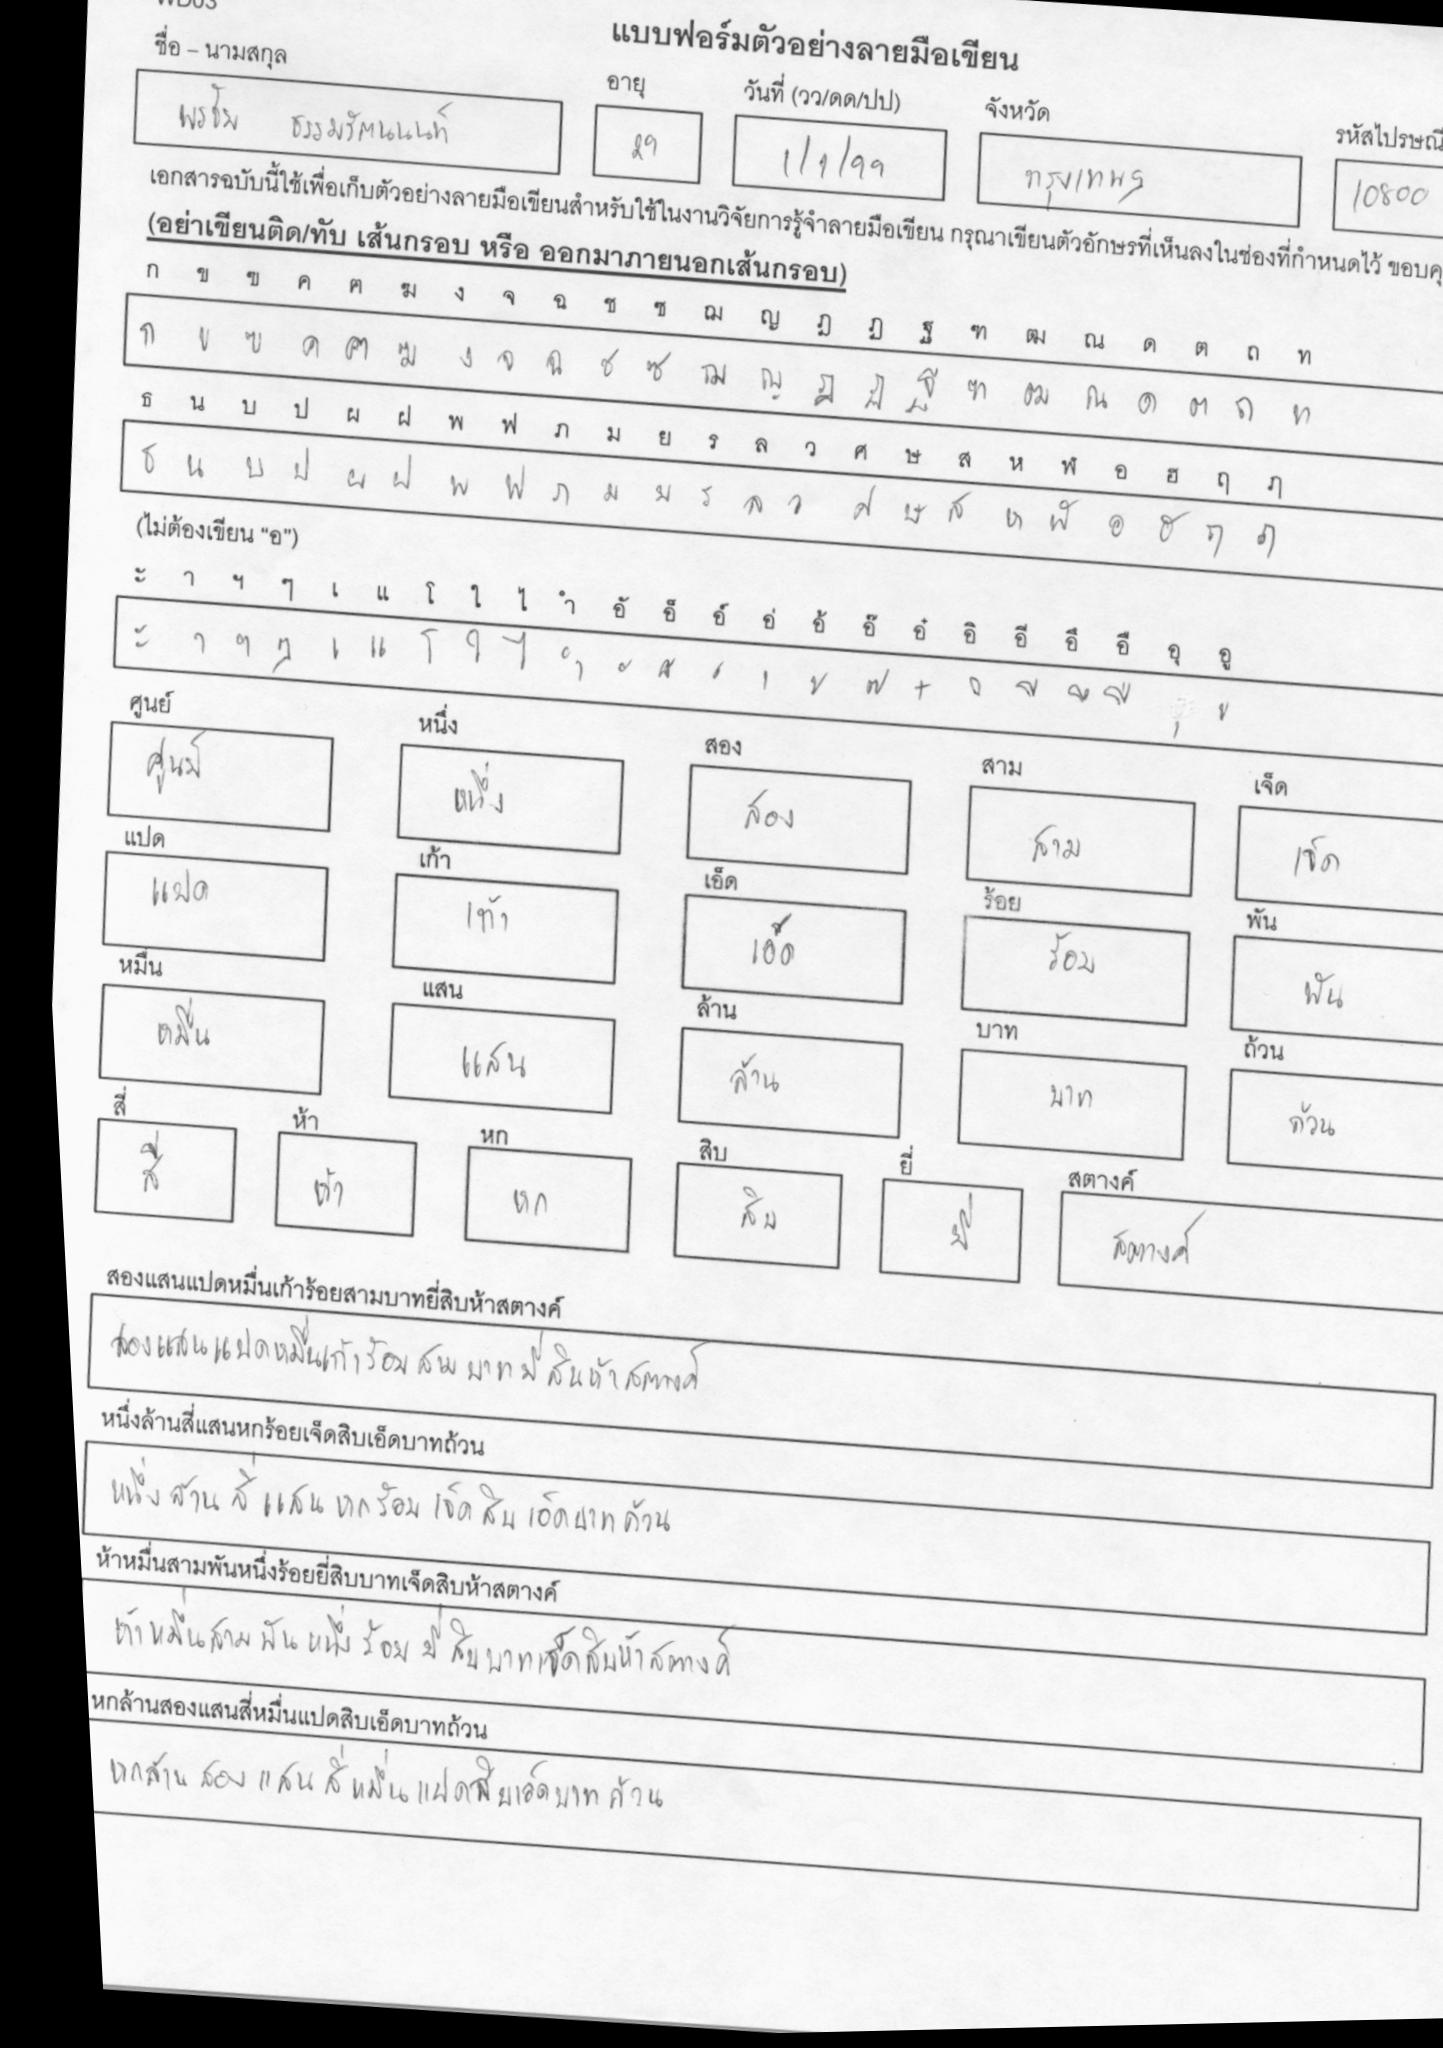 WD03
แบบฟอร์มตัวอย่างลายมือเขียน
ชื่อ – นามสกุล อายุ วันที่ (วว/ดด/ปป) จังหวัด รหัสไปรษณี
พรชัย ธรรมรัตนนนท์ 29 1/1/99 กรุงเทพฯ 10800
เอกสารฉบับนี้ใช้เพื่อเก็บตัวอย่างลายมือเขียนสำหรับใช้ในงานวิจัยการรู้จำลายมือเขียน กรุณาเขียนตัวอักษรที่เห็นลงในช่องที่กำหนดไว้ ขอบคุ
(อย่าเขียนติด/ทับ เส้นกรอบ หรือ ออกมาภายนอกเส้นกรอบ)
ก ข ฃ ค ฅ ฆ ง จ ฉ ช ซ ฌ ญ ฎ ฏ ฐ ฑ ฒ ณ ด ต ถ ท
ก ข ฃ ค ฅ ฆ ง จ ฉ ช ซ ฌ ญ ฎ ฏ ฐ ฑ ฒ ณ ด ต ถ ท
ธ น บ ป ผ ฝ พ ฟ ภ ม ย ร ล ว ศ ษ ส ห ฬ อ ฮ ฤ ฦ
ธ น บ ป ผ ฝ พ ฟ ภ ม ย ร ล ว ศ ษ ส ห ฬ อ ฮ ฤ ฦ
(ไม่ต้องเขียน “อ”)
ะ า ฯ ๆ เ แ โ ใ ไ ำ อั อ็ อ์ อ่ อ้ อ๊ อ๋ อิ อี อึ อื อุ อู
ะ า ฯ ๆ เ แ โ ใ ไ ำ ั ็ ์ ่ ้ ๊ ๋ ิ ี ึ ื ุ ู
ศูนย์ หนึ่ง สอง สาม เจ็ด
ศูนย์ หนึ่ง สอง สาม เจ็ด
แปด เก้า เอ็ด ร้อย พัน
แปด เก้า เอ็ด ร้อย พัน
หมื่น แสน ล้าน บาท ถ้วน
หมื่น แสน ล้าน บาท ถ้วน
สี่ ห้า หก สิบ ยี่ สตางค์
สี่ ห้า หก สิบ ยี่ สตางค์
สองแสนแปดหมื่นเก้าร้อยสามบาทยี่สิบห้าสตางค์
สองแสนแปดหมื่นเก้าร้อย สาม บาท ยี่ สิบห้า สตางค์
หนึ่งล้านสี่แสนหกร้อยเจ็ดสิบเอ็ดบาทถ้วน
หนึ่ง ล้าน สี่ แสน หกร้อย เจ็ด สิบ เอ็ดบาท ถ้วน
ห้าหมื่นสามพันหนึ่งร้อยยี่สิบบาทเจ็ดสิบห้าสตางค์
ห้าหมื่นสาม พัน หนึ่ง ร้อย ยี่ สิบบาทเจ็ดสิบห้าสตางค์
หกล้านสองแสนสี่หมื่นแปดสิบเอ็ดบาทถ้วน
หกล้าน สอง แสน สี่ หมื่น แปดสิบเอ็ดบาท ถ้วน